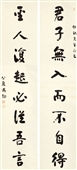 君子無入而不自得
聖人復起必從吾言